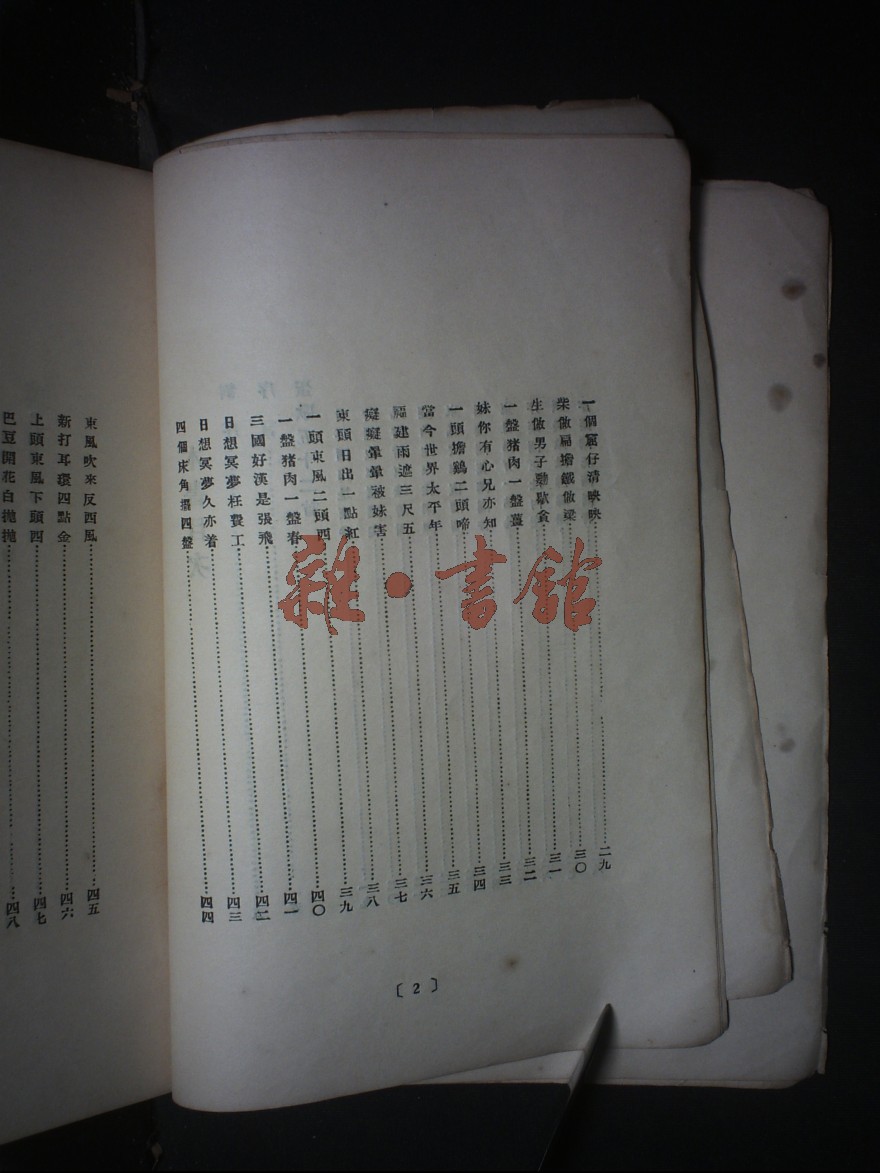 一個竈仔清映映……二九
柴做扁擔鐵做梁……三〇
生做男子勸歇貪……三一
一盤猪肉一盤薑……三二
妹你有心兄亦知……三三
一頭擔鷄二頭啼……三四
當今世界太平年……三五
福建雨遮三尺五……三六
癡癡暈暈被妹害……三七
東頭日出一點紅……三八
一頭東風二頭西……三九
一盤猪肉一盤春……四〇
三國好漢是張飛……四一
日想冥夢枉費工……四二
日想冥夢久亦着……四三
四個床角擺四盤……四四
〔2〕
東風吹來反西風……四五
新打耳環四點金……四六
上頭東風下頭四……四七
巴豆開花白拋拋……四八
雜·書館